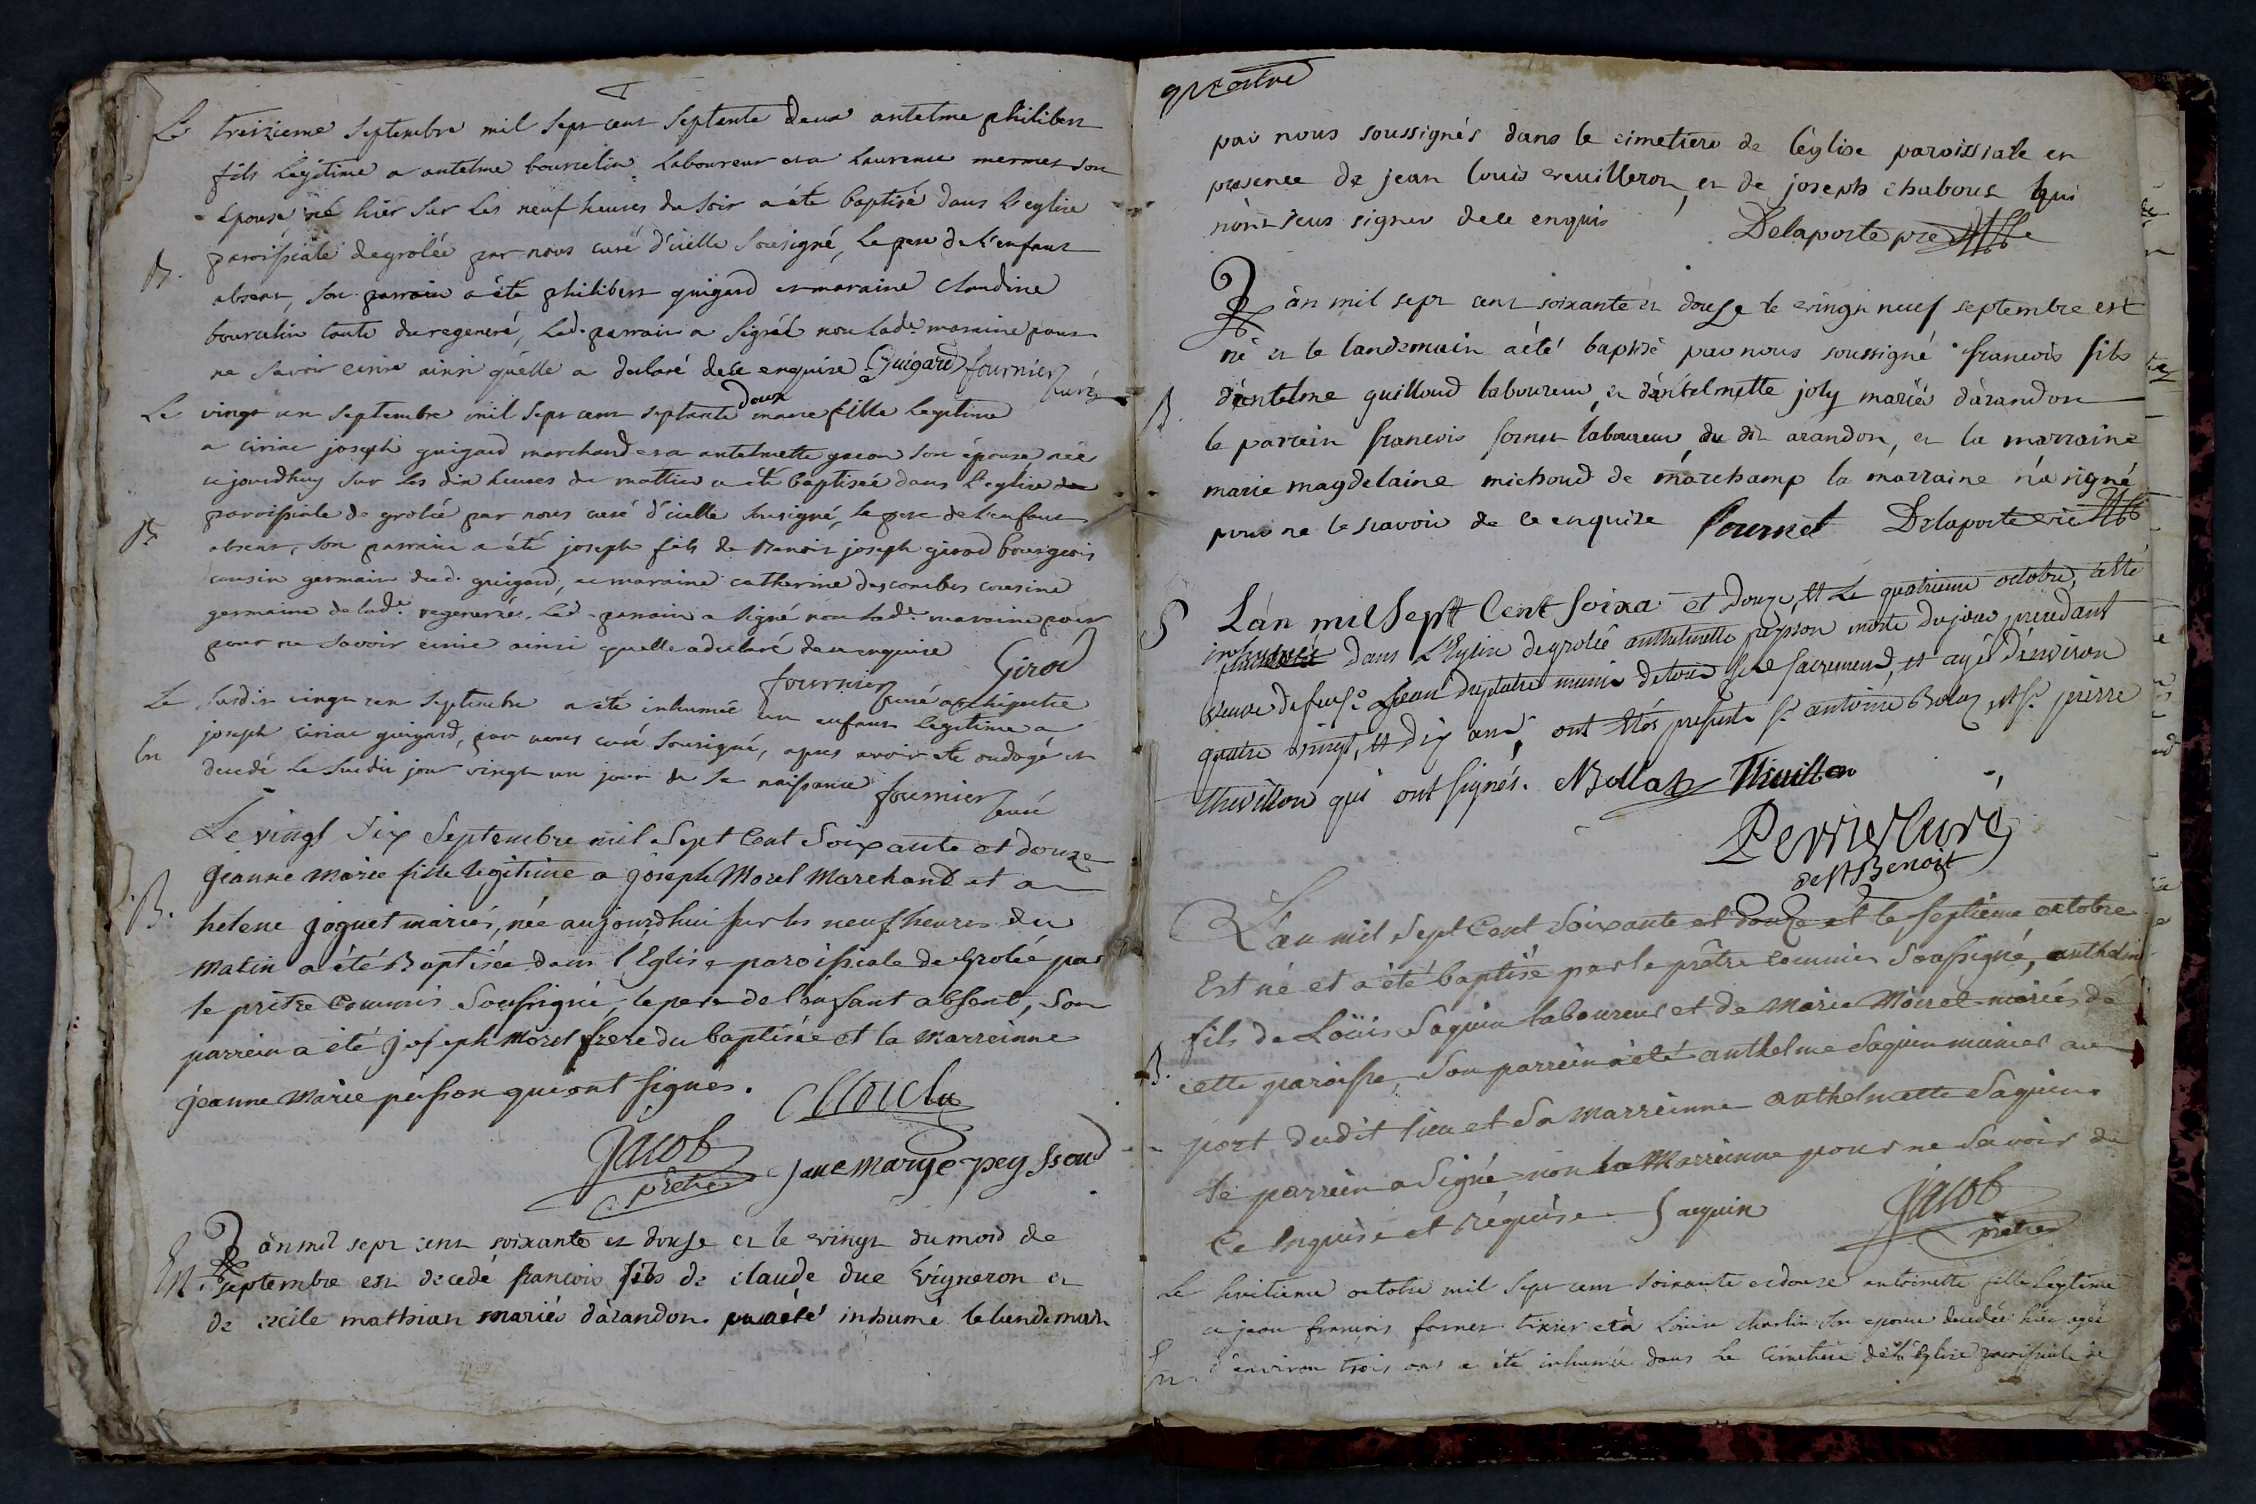 Le treizieme Septembre mil Sept cent Septante deux antelme philibert
fils Légitime a antelme bourcelin Laboureur et a Laurence mermet son
épouse né hier Sur Les neuf heures du Soir a été baptisé dans L'eglise
B. paroissiale de grolée par nous curé d'icelle Sousigné, Le pere de L'enfant
absent, son parrain a été philibert guigard et maraine Claudine
bourcelin tante du regeneré, Led. parrain a signé non Lade. maraine pour
ne Savoir ecrire ainsi qu'elle a declaré de ce enquise Guigard fournier
curé
Le vingt un Septembre mil Sept cent septante deux marie fille Legitime
a ciriac joseph guigard marchand et a antelmette son épouse née
ce jourdhuy Sur Les dix heures du mattin a été baptisée dans L'eglise
paroissiale de grolée par nous curé d'icelle Sousigné, Le pere de L'enfant
B. absent, Son parrain a été joseph fils de Benoit joseph girod bourgeois
cousin germain dud. guigard, et maraine catherine descombes cousine
germaine de lade. regenerée. Led. parrain a signé non Lade. maraine pour
pour ne Savoir ecrire ainsi quelle a declaré de ce enquise Girod
fournier curé archipretre
Le Susdit vingt un Septembre a été inhumé un enfant Legitime a
joseph ciriac guigard, par nous curé Sousigné, apres avoir été ondoyé et
En decedé Le Susdit jour vingt un jour de Sa naissance fournier
curé
Le vingt Six Septembre mil Sept Cent Soixante et douze
Jeanne Marie fille legitime a joseph Morel Marchand et a
B. helene joguet mariés, née aujourdhui sur les neuf heures du
Matin a été Baptisée dans l'Eglise paroissiale de Grolée par
le prêtre Commis Soussigné, le pere de l'enfant absent, Son
parrein a été joseph Morel frere du baptisée et la Marreinne
jeanne Marie peisson qui ont signés.
Jacob
prêtre
Jane marye peyssoud
L'an mil sept cent soixante et douse et le vingt du mois de
En. septembre est decedé francois fils de claude duc Vigneron et
de cecile mathian mariés d'arandon et a été inhumé le landemain
quatre
par nous soussignés dans le cimetiere de l'église paroissiale en
presence de jean louis revilleron, et de joseph chabout qui
n'ont seus signer de ce enquis Delaporte
L'an mil sept cent soixante et douse le vingt neuf septembre est
né et le landemain a été baptisé par nous soussigné francois fils
B. d'antelme guilloud laboureur, et d'antelmette joly mariés d'arandon
le parrain francois fornet laboureur du dit arandon, et la marraine
marie magdelaine michoud de marchamp la marraine n'a signé
pour ne le scavoir de ce enquise fournet Delaporte vic
S L'an mil Sept Cent Soixa et Douze, et Le quatrieme octobre, a été
inhumée dans L'Eglise de grolée anthelmette peysson morte du jour precedant
veuve de feu sr. Jean munie de tous Les Sacrements, et agée d'environ
quatre vingt, et dix ans, ont étés presents sr. antoine Bolaz et sr. pierre
thuillon qui ont signés. Bollaz Thuillon
Perrier Curé
de St Benoit
L'an mil Sept Cent Soixante et douze et le septieme octobre
Est né et a été baptisé par le prêtre Commis Soussigné, anthelme
fils de Loüis Saquin laboureur et de Marie Moiret mariés de
B. cette paroisse, Son parrein a été anthelme Saquin munier au
port dudit lieu et Sa marreinne anthelmette Saquin
le parrein a Signé non la Marreinne pour ne Savoir de
Ce Enquise et réquise Saquin Jacob
prêtre
Le huitieme octobre mil Sept cent Soixante et douze antoinette fille Legitime
a jean francois fornet tixier et à Loüise charlin Son epouse decedée hier agée
En. d'environ trois ans a été inhumée dans Le Cimetiere de l'église paroissiale de